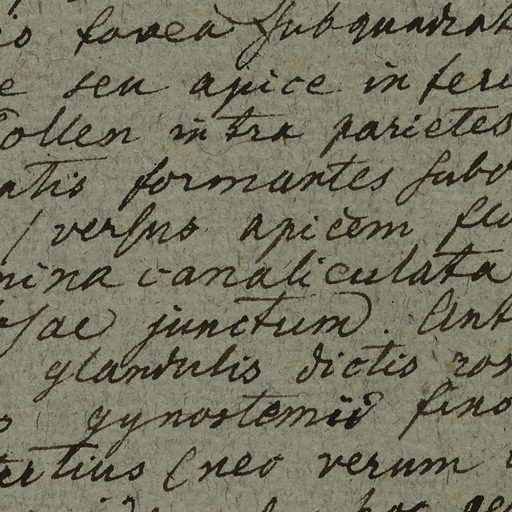 fovea subquadrat
seu apice inferi
Pollen intra parietes
formantes subo
/ versus apicem flo
mina canaliculata
junctum. Ant
glandulis dictis ros
gynostemii sino
tertius (nec verum